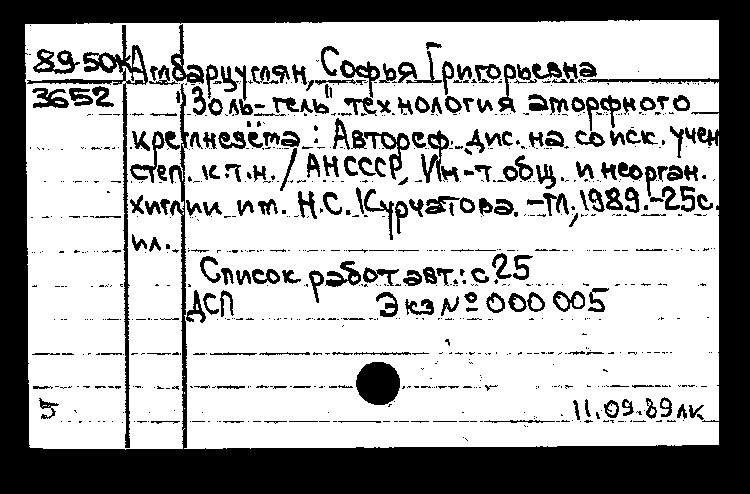 89-50К Амбарцумян, Софья Григорьевна
3652 "Золь-гель" технология аморфного
кремнезёма : Автореф. дис. на соиск. учен
степ. к.т.н. / АН СССР, Ин-т общ. и неорган.
химии им. Н.С. Курчатова. -М., 1989.-25с.
ил.
Список работ авт.: с.25
ДСП Экз № 000 005
5 11.09.89 лк